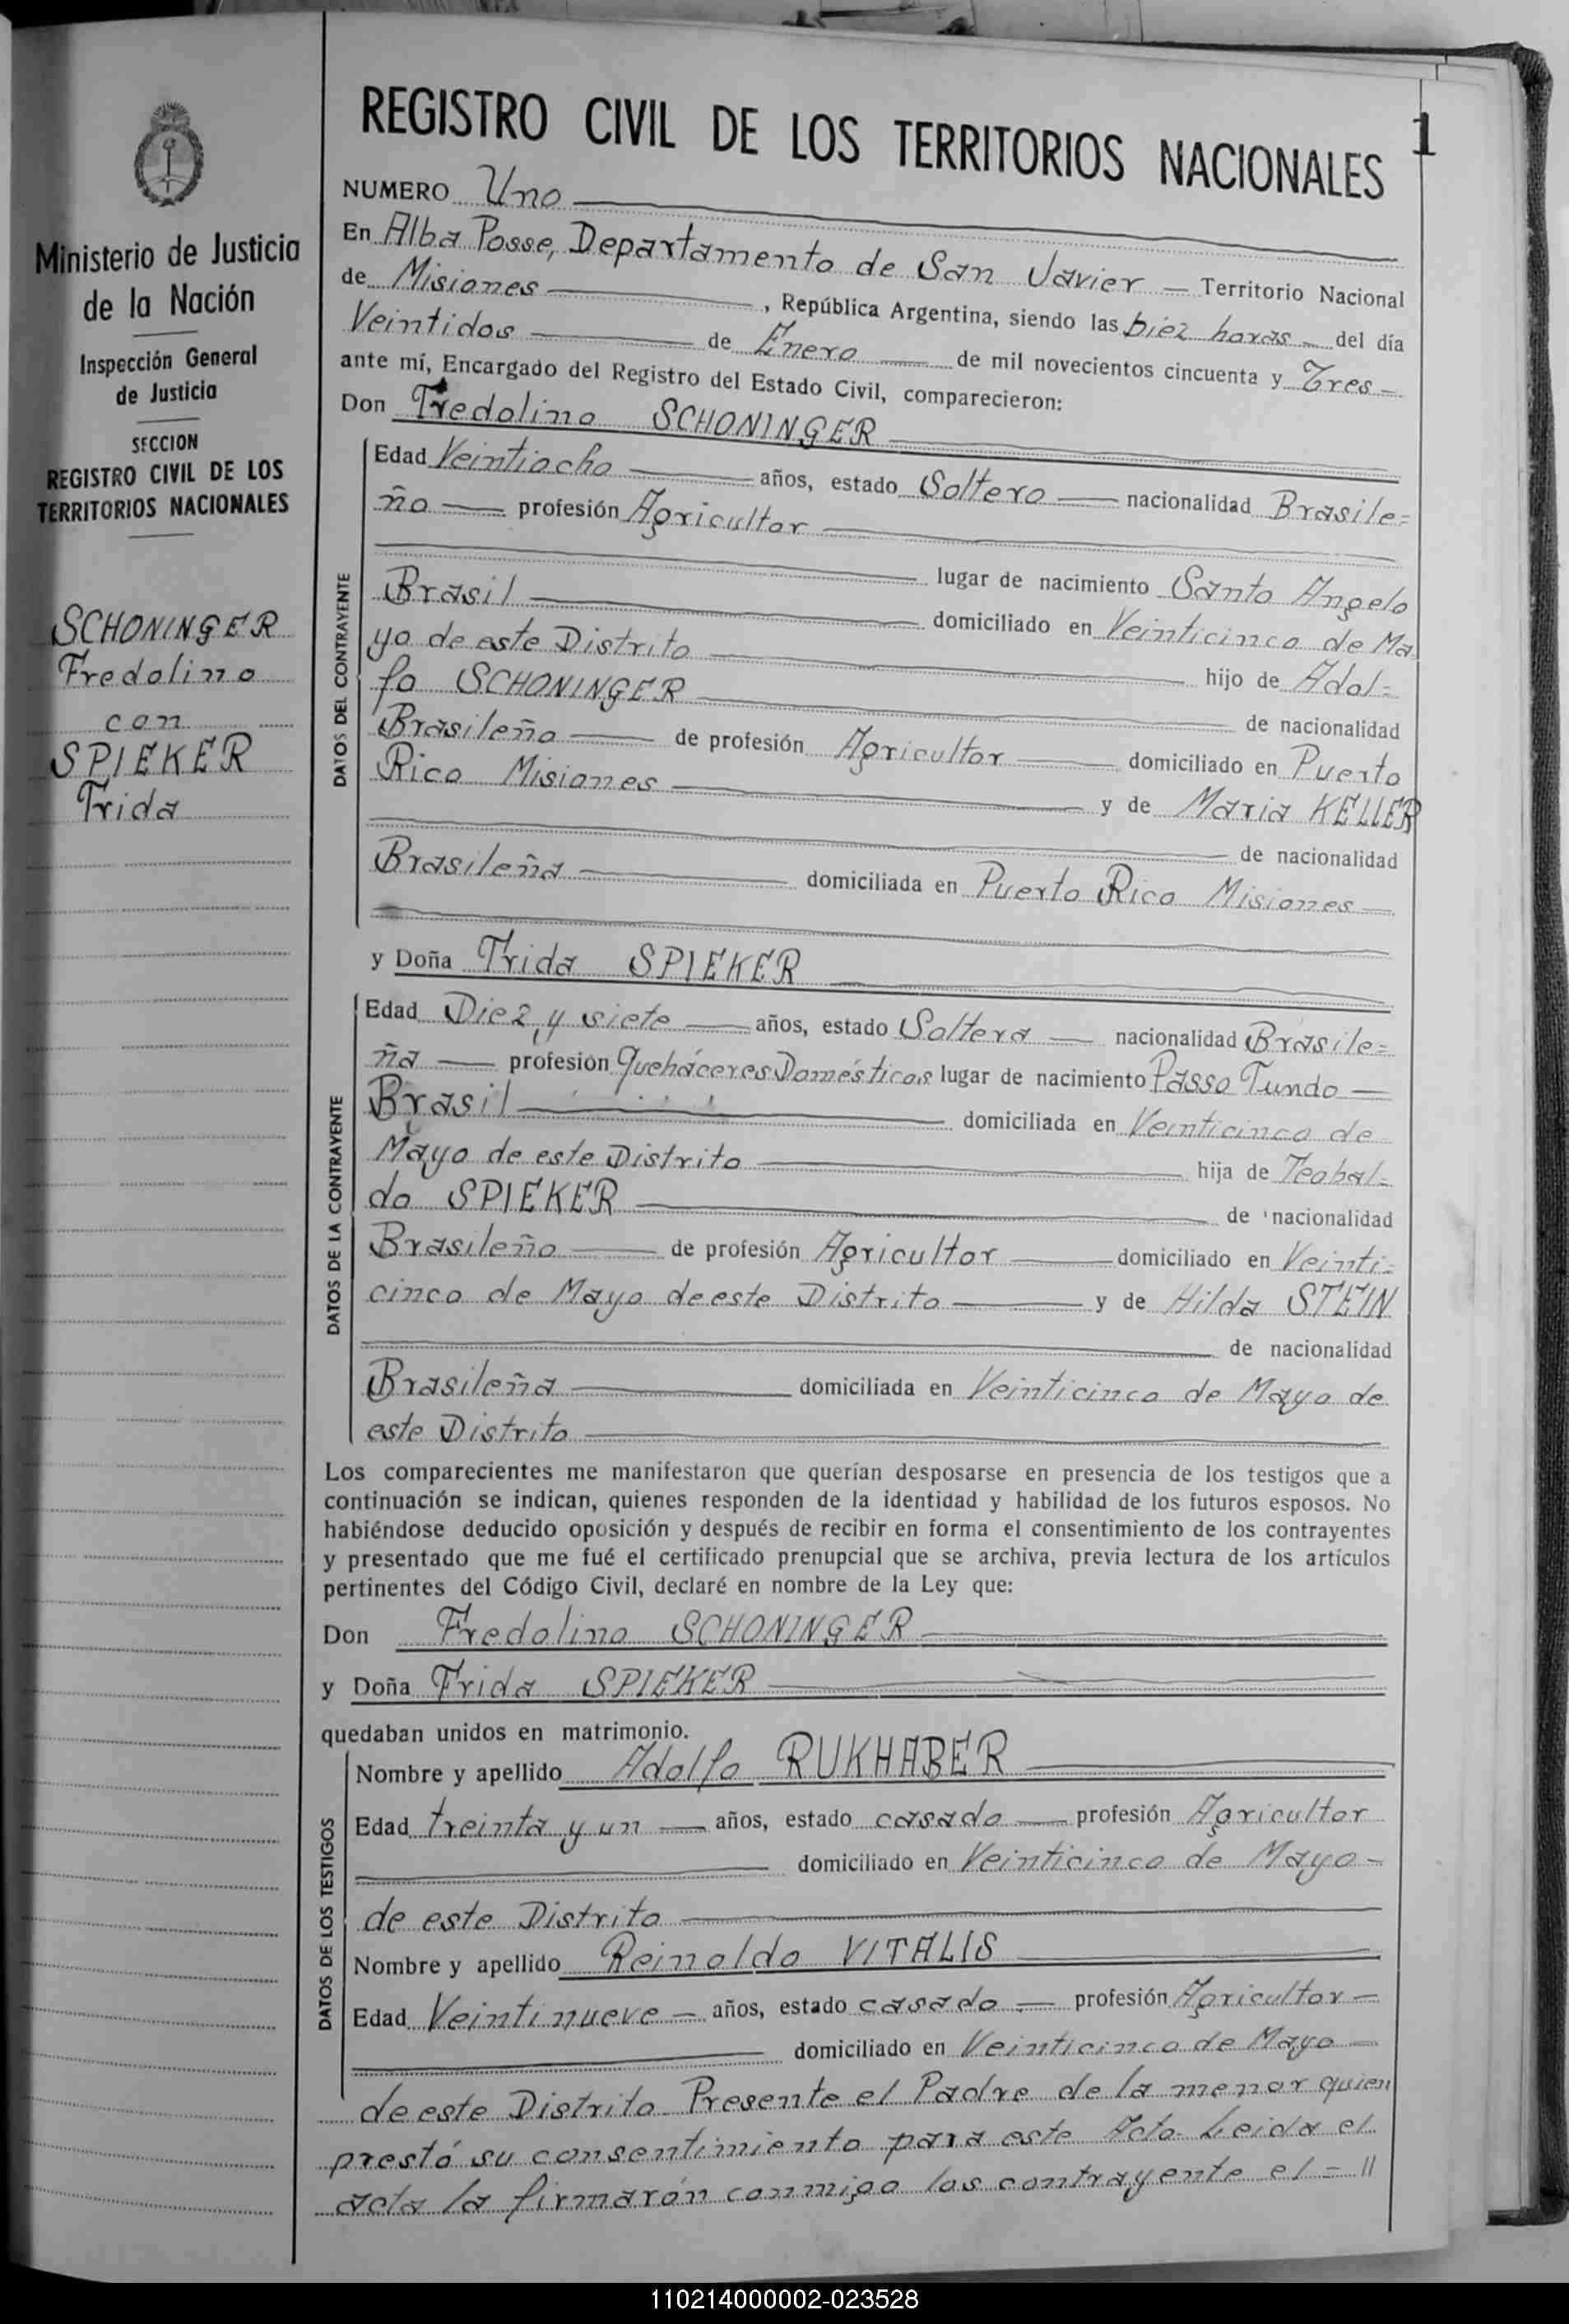 Ministerio de Justicia
de la Nación
Inspección General
de Justicia
SECCION
REGISTRO CIVIL DE LOS
TERRITORIOS NACIONALES
SCHONINGER
Fredolino
con
SPIEKER
Frida
REGISTRO CIVIL DE LOS TERRITORIOS NACIONALES
1
NUMERO Uno
En Alba Posse, Departamento de San Javier — Territorio Nacional
de Misiones —, República Argentina, siendo las Diez horas — del día
Veintidos — de Enero — de mil novecientos cincuenta y Tres —
ante mí, Encargado del Registro del Estado Civil, comparecieron:
Don Fredolino SCHONINGER
DATOS DEL CONTRAYENTE
Edad Veintiocho — años, estado Soltero — nacionalidad Brasile=
ño — profesión Agricultor —
lugar de nacimiento Santo Angelo
Brasil — domiciliado en Veinticinco de Ma
yo de este Distrito — hijo de Adol=
fo SCHONINGER — de nacionalidad
Brasileño — de profesión Agricultor — domiciliado en Puerto
Rico Misiones — y de Maria KELLER
— de nacionalidad
Brasileña — domiciliada en Puerto Rico Misiones —
y Doña Frida SPIEKER
DATOS DE LA CONTRAYENTE
Edad Diez y siete — años, estado Soltera — nacionalidad Brasile=
ña — profesión Quehaceres Domésticos lugar de nacimiento Passo Fundo —
Brasil — domiciliada en Veinticinco de
Mayo de este Distrito — hija de Teobal=
do SPIEKER — de nacionalidad
Brasileño — de profesión Agricultor — domiciliado en Veinti=
cinco de Mayo de este Distrito — y de Hilda STEIN
— de nacionalidad
Brasileña — domiciliada en Veinticinco de Mayo de
este Distrito —
Los comparecientes me manifestaron que querían desposarse en presencia de los testigos que a
continuación se indican, quienes responden de la identidad y habilidad de los futuros esposos. No
habiéndose deducido oposición y después de recibir en forma el consentimiento de los contrayentes
y presentado que me fué el certificado prenupcial que se archiva, previa lectura de los artículos
pertinentes del Código Civil, declaré en nombre de la Ley que:
Don Fredolino SCHONINGER —
y Doña Frida SPIEKER —
quedaban unidos en matrimonio.
DATOS DE LOS TESTIGOS
Nombre y apellido Adolfo RUKHABER —
Edad treinta y un — años, estado casado — profesión Agricultor
— domiciliado en Veinticinco de Mayo —
de este Distrito —
Nombre y apellido Reinoldo VITALIS —
Edad Veintinueve — años, estado casado — profesión Agricultor —
— domiciliado en Veinticinco de Mayo —
de este Distrito Presente el Padre de la menor quien
prestó su consentimiento para este Acto Leida el
acta la firmarón conmigo los contrayente el = //
110214000002-023528